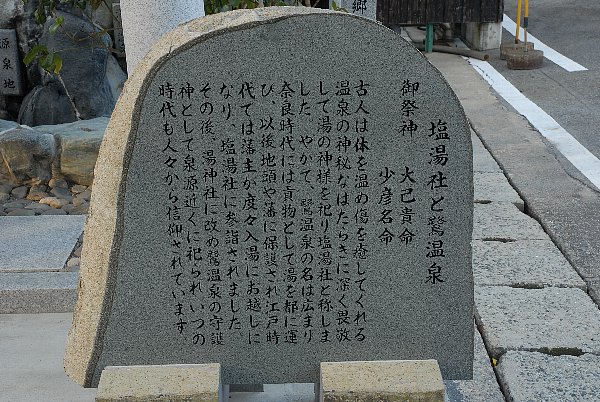 塩湯社と鷲温泉
御祭神 大己貴命
少彦名命
古人は体を温め傷を癒してくれる
温泉の神秘なはたらきに深く畏敬
して湯の神様を祀り塩湯社と称しま
した。やがて、鷲温泉の名は広まり
奈良時代には貢物として湯を都に運
び、以後地頭や藩に保護され江戸時
代では藩主が度々入湯にお越しに
なり、塩湯社に参詣されました。
その後、湯神社に改め鷲温泉の守護
神として泉源近くに祀られいつの
時代も人々から信仰されています。
源泉地
郷